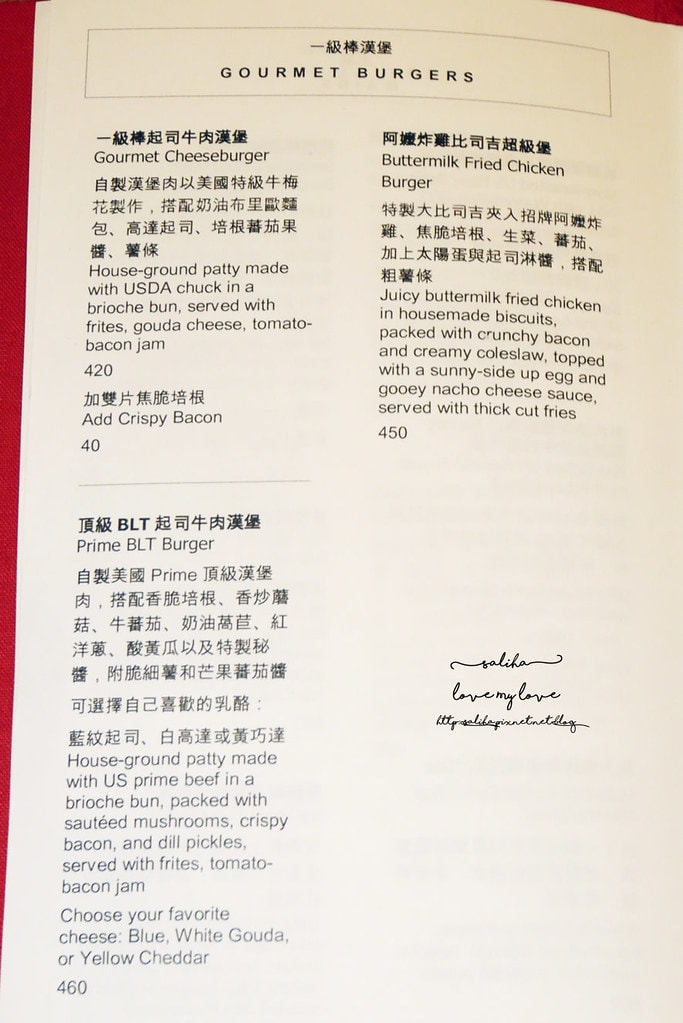 一級棒漢堡
GOURMET BURGERS
一級棒起司牛肉漢堡
Gourmet Cheeseburger
自製漢堡肉以美國特級牛梅
花製作，搭配奶油布里歐麵
包、高達起司、培根蕃茄果
醬、薯條
House-ground patty made
with USDA chuck in a
brioche bun, served with
frites, gouda cheese, tomato-
bacon jam
420
加雙片焦脆培根
Add Crispy Bacon
40
頂級 BLT 起司牛肉漢堡
Prime BLT Burger
自製美國 Prime 頂級漢堡
肉，搭配香脆培根、香炒蘑
菇、牛蕃茄、奶油萵苣、紅
洋蔥、酸黃瓜以及特製秘
醬，附脆細薯和芒果蕃茄醬
可選擇自己喜歡的乳酪：
藍紋起司、白高達或黃巧達
House-ground patty made
with US prime beef in a
brioche bun, packed with
sautéed mushrooms, crispy
bacon, and dill pickles,
served with frites, tomato-
bacon jam
Choose your favorite
cheese: Blue, White Gouda,
or Yellow Cheddar
460
阿嬤炸雞比司吉超級堡
Buttermilk Fried Chicken
Burger
特製大比司吉夾入招牌阿嬤炸
雞、焦脆培根、生菜、蕃茄、
加上太陽蛋與起司淋醬，搭配
粗薯條
Juicy buttermilk fried chicken
in housemade biscuits,
packed with crunchy bacon
and creamy coleslaw, topped
with a sunny-side up egg and
gooey nacho cheese sauce,
served with thick cut fries
450
saliha
love my love
http:saliha.pixnet.net.blog